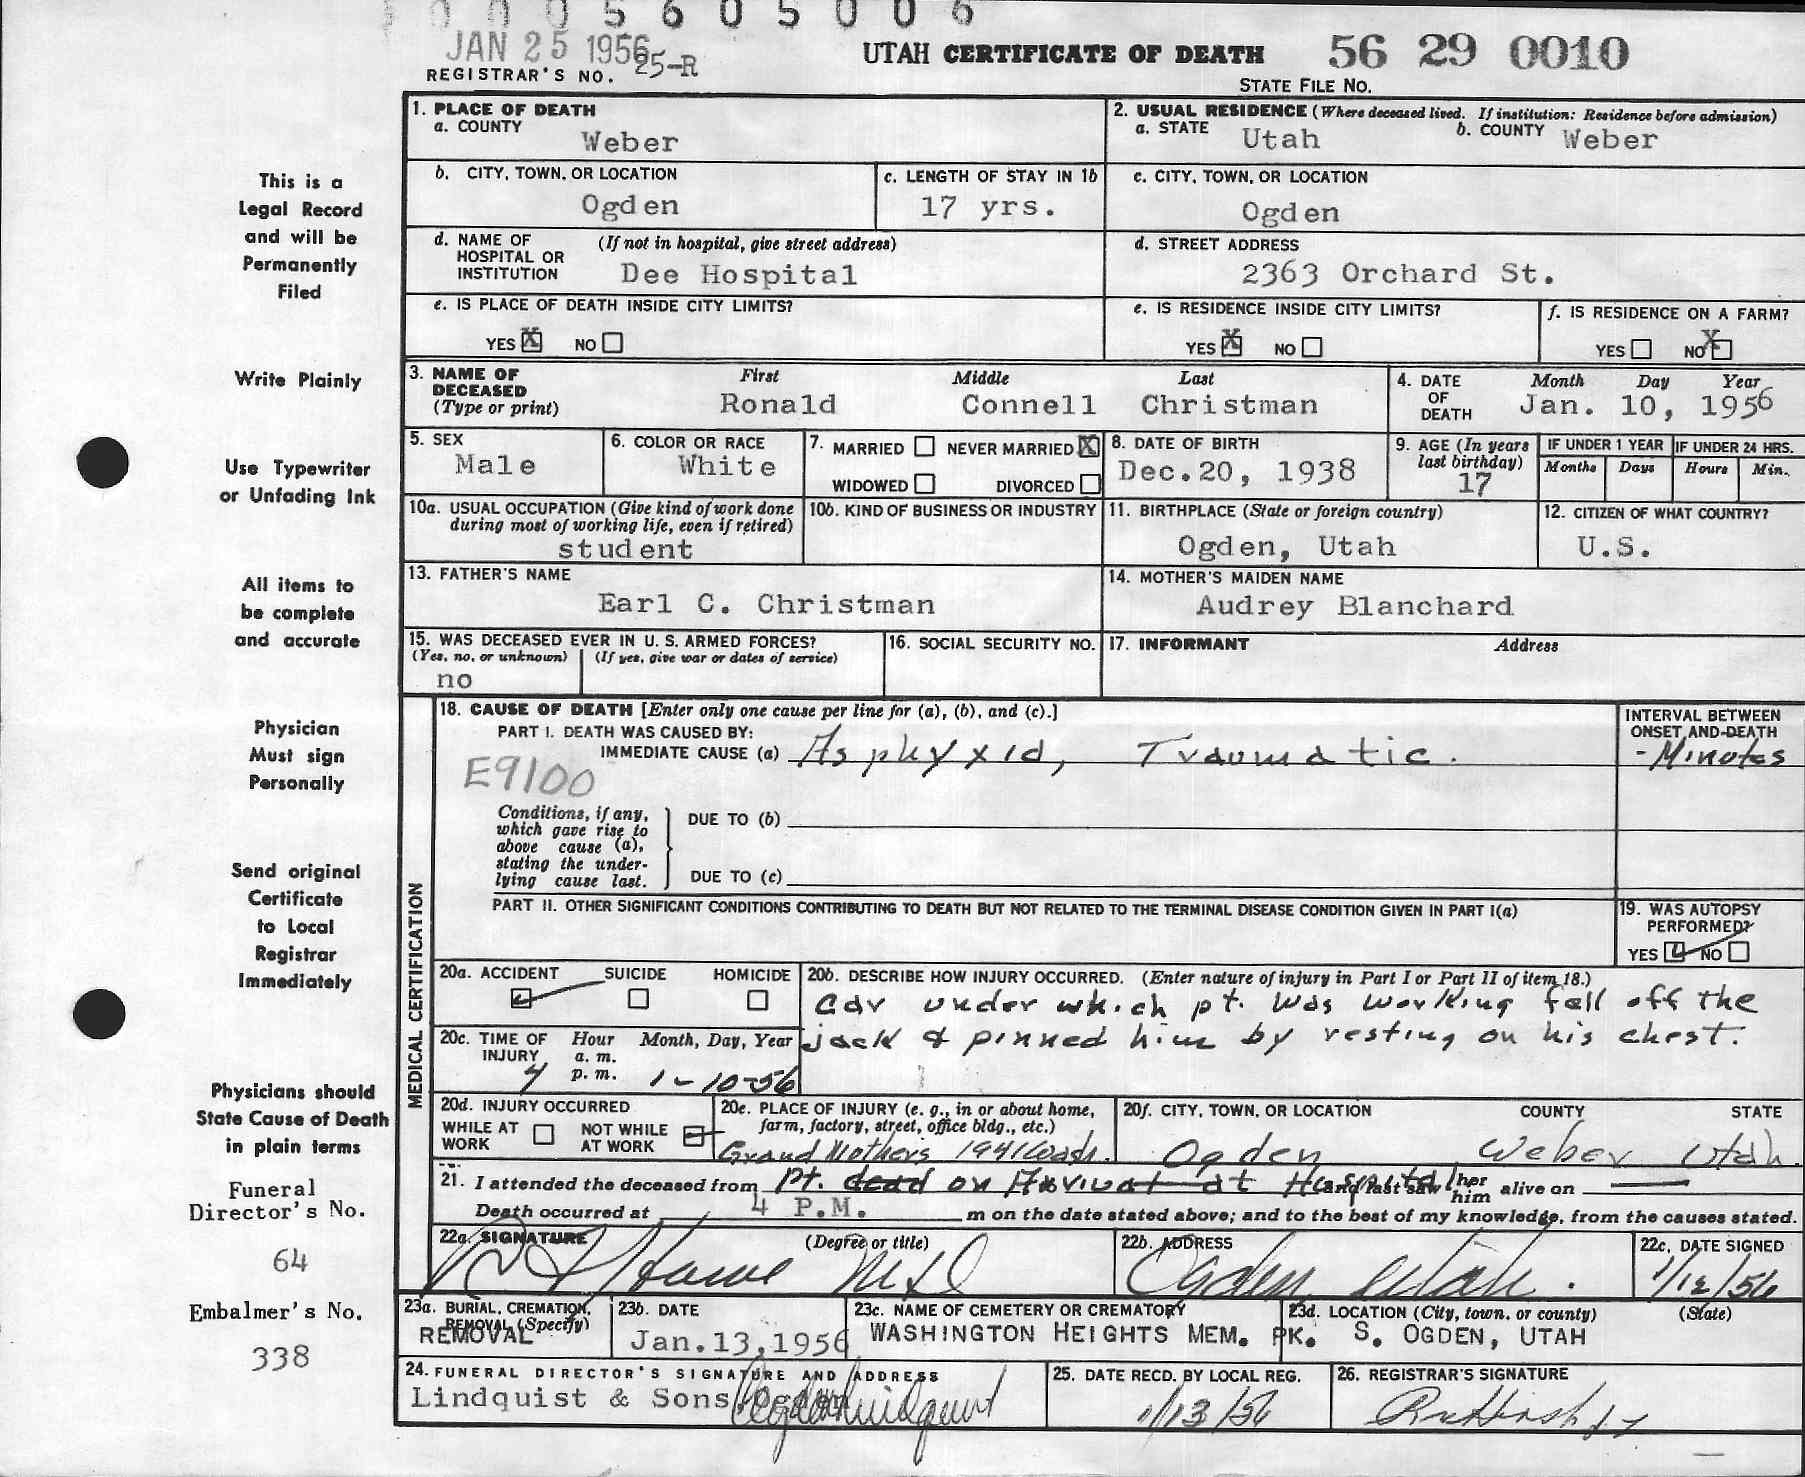 0 0 0 5 6 0 5 0 0 6
JAN 25 1956
25-R
REGISTRAR'S NO.
UTAH CERTIFICATE OF DEATH
56 29 0010
STATE FILE NO.
This is a
Legal Record
and will be
Permanently
Filed
Write Plainly
Use Typewriter
or Unfading Ink
All items to
be complete
and accurate
Physician
Must sign
Personally
Send original
Certificate
to Local
Registrar
Immediately
Physicians should
State Cause of Death
in plain terms
Funeral
Director's No.
64
Embalmer's No.
338
1. PLACE OF DEATH
a. COUNTY
Weber
2. USUAL RESIDENCE (Where deceased lived. If institution: Residence before admission)
a. STATE Utah b. COUNTY Weber
b. CITY, TOWN, OR LOCATION
Ogden
c. LENGTH OF STAY IN 1b
17 yrs.
c. CITY, TOWN, OR LOCATION
Ogden
d. NAME OF HOSPITAL OR INSTITUTION (If not in hospital, give street address)
Dee Hospital
d. STREET ADDRESS
2363 Orchard St.
e. IS PLACE OF DEATH INSIDE CITY LIMITS?
YES X NO
e. IS RESIDENCE INSIDE CITY LIMITS?
YES X NO
f. IS RESIDENCE ON A FARM?
YES NO X
3. NAME OF DECEASED (Type or print)
First Middle Last
Ronald Connell Christman
4. DATE OF DEATH
Month Day Year
Jan. 10, 1956
5. SEX
Male
6. COLOR OR RACE
White
7. MARRIED NEVER MARRIED X
WIDOWED DIVORCED
8. DATE OF BIRTH
Dec.20, 1938
9. AGE (In years last birthday)
17
IF UNDER 1 YEAR
Months Days
IF UNDER 24 HRS.
Hours Min.
10a. USUAL OCCUPATION (Give kind of work done during most of working life, even if retired)
student
10b. KIND OF BUSINESS OR INDUSTRY
11. BIRTHPLACE (State or foreign country)
Ogden, Utah
12. CITIZEN OF WHAT COUNTRY?
U.S.
13. FATHER'S NAME
Earl C. Christman
14. MOTHER'S MAIDEN NAME
Audrey Blanchard
15. WAS DECEASED EVER IN U. S. ARMED FORCES?
(Yes, no, or unknown) (If yes, give war or dates of service)
no
16. SOCIAL SECURITY NO.
17. INFORMANT Address
MEDICAL CERTIFICATION
18. CAUSE OF DEATH [Enter only one cause per line for (a), (b), and (c).]
PART I. DEATH WAS CAUSED BY:
IMMEDIATE CAUSE (a) Asphyxia, Traumatic.
INTERVAL BETWEEN ONSET AND DEATH
- Minutes
E9100
Conditions, if any, which gave rise to above cause (a), stating the underlying cause last.
DUE TO (b)
DUE TO (c)
PART II. OTHER SIGNIFICANT CONDITIONS CONTRIBUTING TO DEATH BUT NOT RELATED TO THE TERMINAL DISEASE CONDITION GIVEN IN PART I(a)
19. WAS AUTOPSY PERFORMED?
YES NO
20a. ACCIDENT SUICIDE HOMICIDE
20b. DESCRIBE HOW INJURY OCCURRED. (Enter nature of injury in Part I or Part II of item 18.)
Car under which pt. was working fell off the
jack & pinned him by resting on his chest.
20c. TIME OF INJURY Hour a. m. p. m. Month, Day, Year
4 1-10-56
20d. INJURY OCCURRED
WHILE AT WORK NOT WHILE AT WORK
20e. PLACE OF INJURY (e. g., in or about home, farm, factory, street, office bldg., etc.)
Grand Mothers 1941 Wash.
20f. CITY, TOWN, OR LOCATION COUNTY STATE
Ogden Weber Utah
21. I attended the deceased from Pt. dead on Arrival at Hospital and last saw her him alive on
Death occurred at 4 P.M. m on the date stated above; and to the best of my knowledge, from the causes stated.
22a. SIGNATURE (Degree or title)
MD
22b. ADDRESS
Ogden Utah.
22c. DATE SIGNED
1/12/56
23a. BURIAL, CREMATION, REMOVAL (Specify)
REMOVAL
23b. DATE
Jan.13,1956
23c. NAME OF CEMETERY OR CREMATORY
WASHINGTON HEIGHTS MEM. PK.
23d. LOCATION (City, town, or county) (State)
S. OGDEN, UTAH
24. FUNERAL DIRECTOR'S SIGNATURE AND ADDRESS
Lindquist & Sons, Ogden
25. DATE RECD. BY LOCAL REG.
1/13/56
26. REGISTRAR'S SIGNATURE